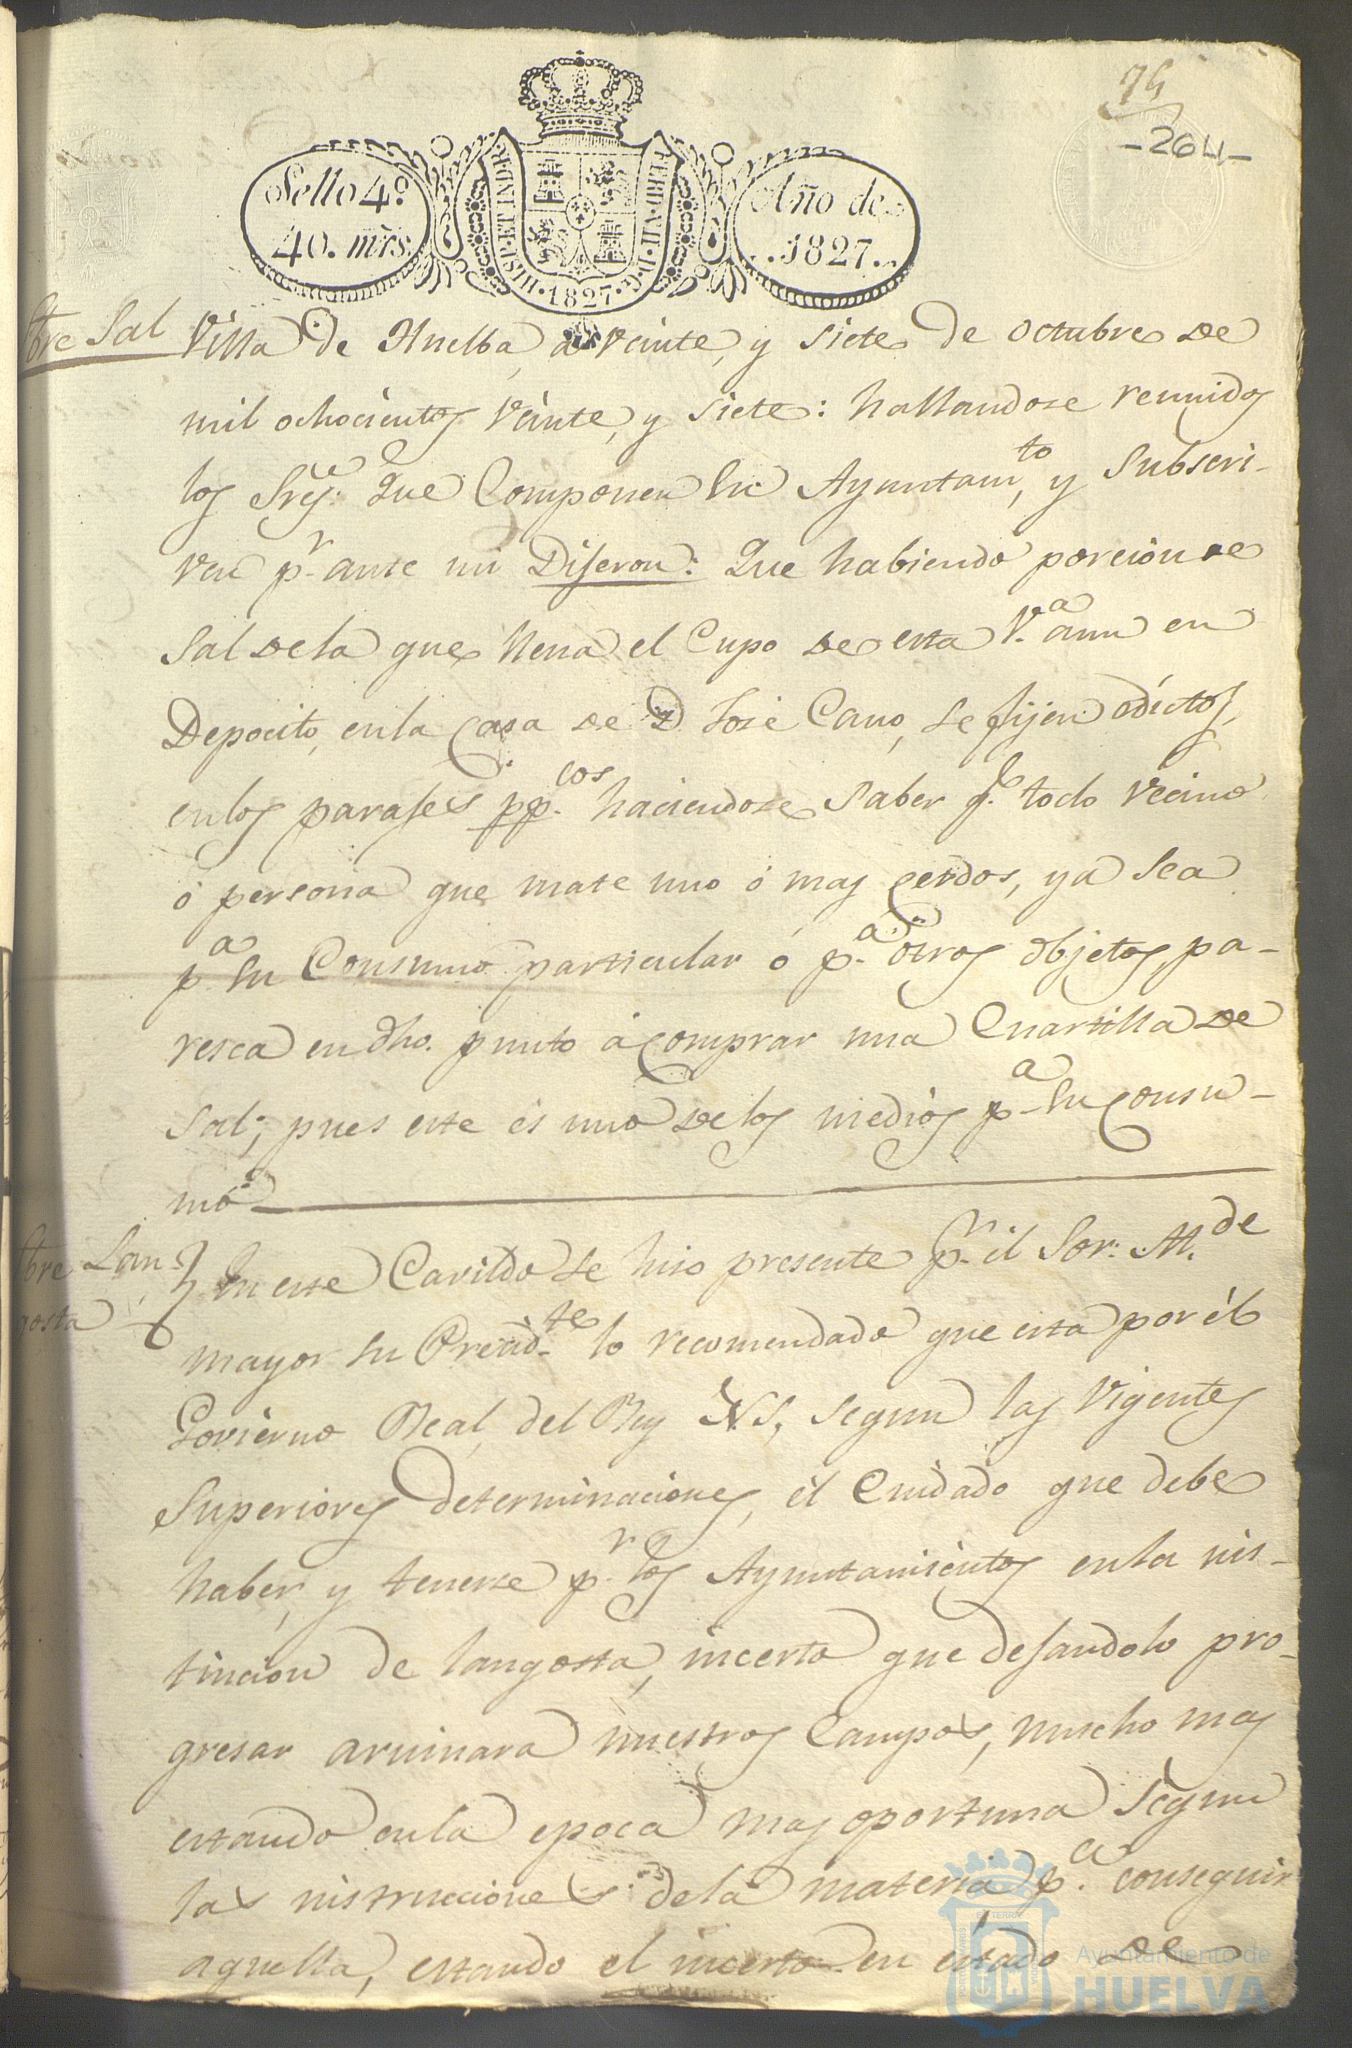 75
-264-
Sello 4.º
40. mrs.
HISP. ET IND. R.
FERD. VII. D. G.
·1827·
Año de
..1827..
bre Sal
Villa de Huelba, a veinte, y siete de octubre de
mil ochocientos veinte, y siete: hallandose reunidos
los Sres. que componen su Ayuntam.to, y subscri-
ven p.r ante mi Dijeron: Que habiendo porcion de
Sal de la que llena el Cupo de esta V.a aun en
Deposito, en la Casa de D. José Cano, se fijen edictos,
en los parajes pp.cos haciendose saber q.e todo vecino
ó persona que mate uno ó mas cerdos, ya sea
p.a su consumo particular ó p.a otros objetos, pa-
resca en dho. punto á comprar una Cuartilla de
Sal; pues este es uno de los medios p.a su consu-
mo.
bre Lan-
gosta
En este Cavildo se hiso presente p.r el Sor. Al.de
mayor su Presid.te lo recomendado que esta por él
Govierno Real, del Rey N.S. segun las vigentes
Superiores determinaciones, él Cuidado que debe
haber, y tenerse p.r los Ayuntamientos en la ins-
tincion de langosta, incerto que dejandolo pro-
gresar aruinara nuestros Campos, mucho mas
estando en la epoca mas oportuna segun
las instrucciones de la materia p.a conseguir
aquella, estando el incerto en estado de
Ayuntamiento de
HUELVA